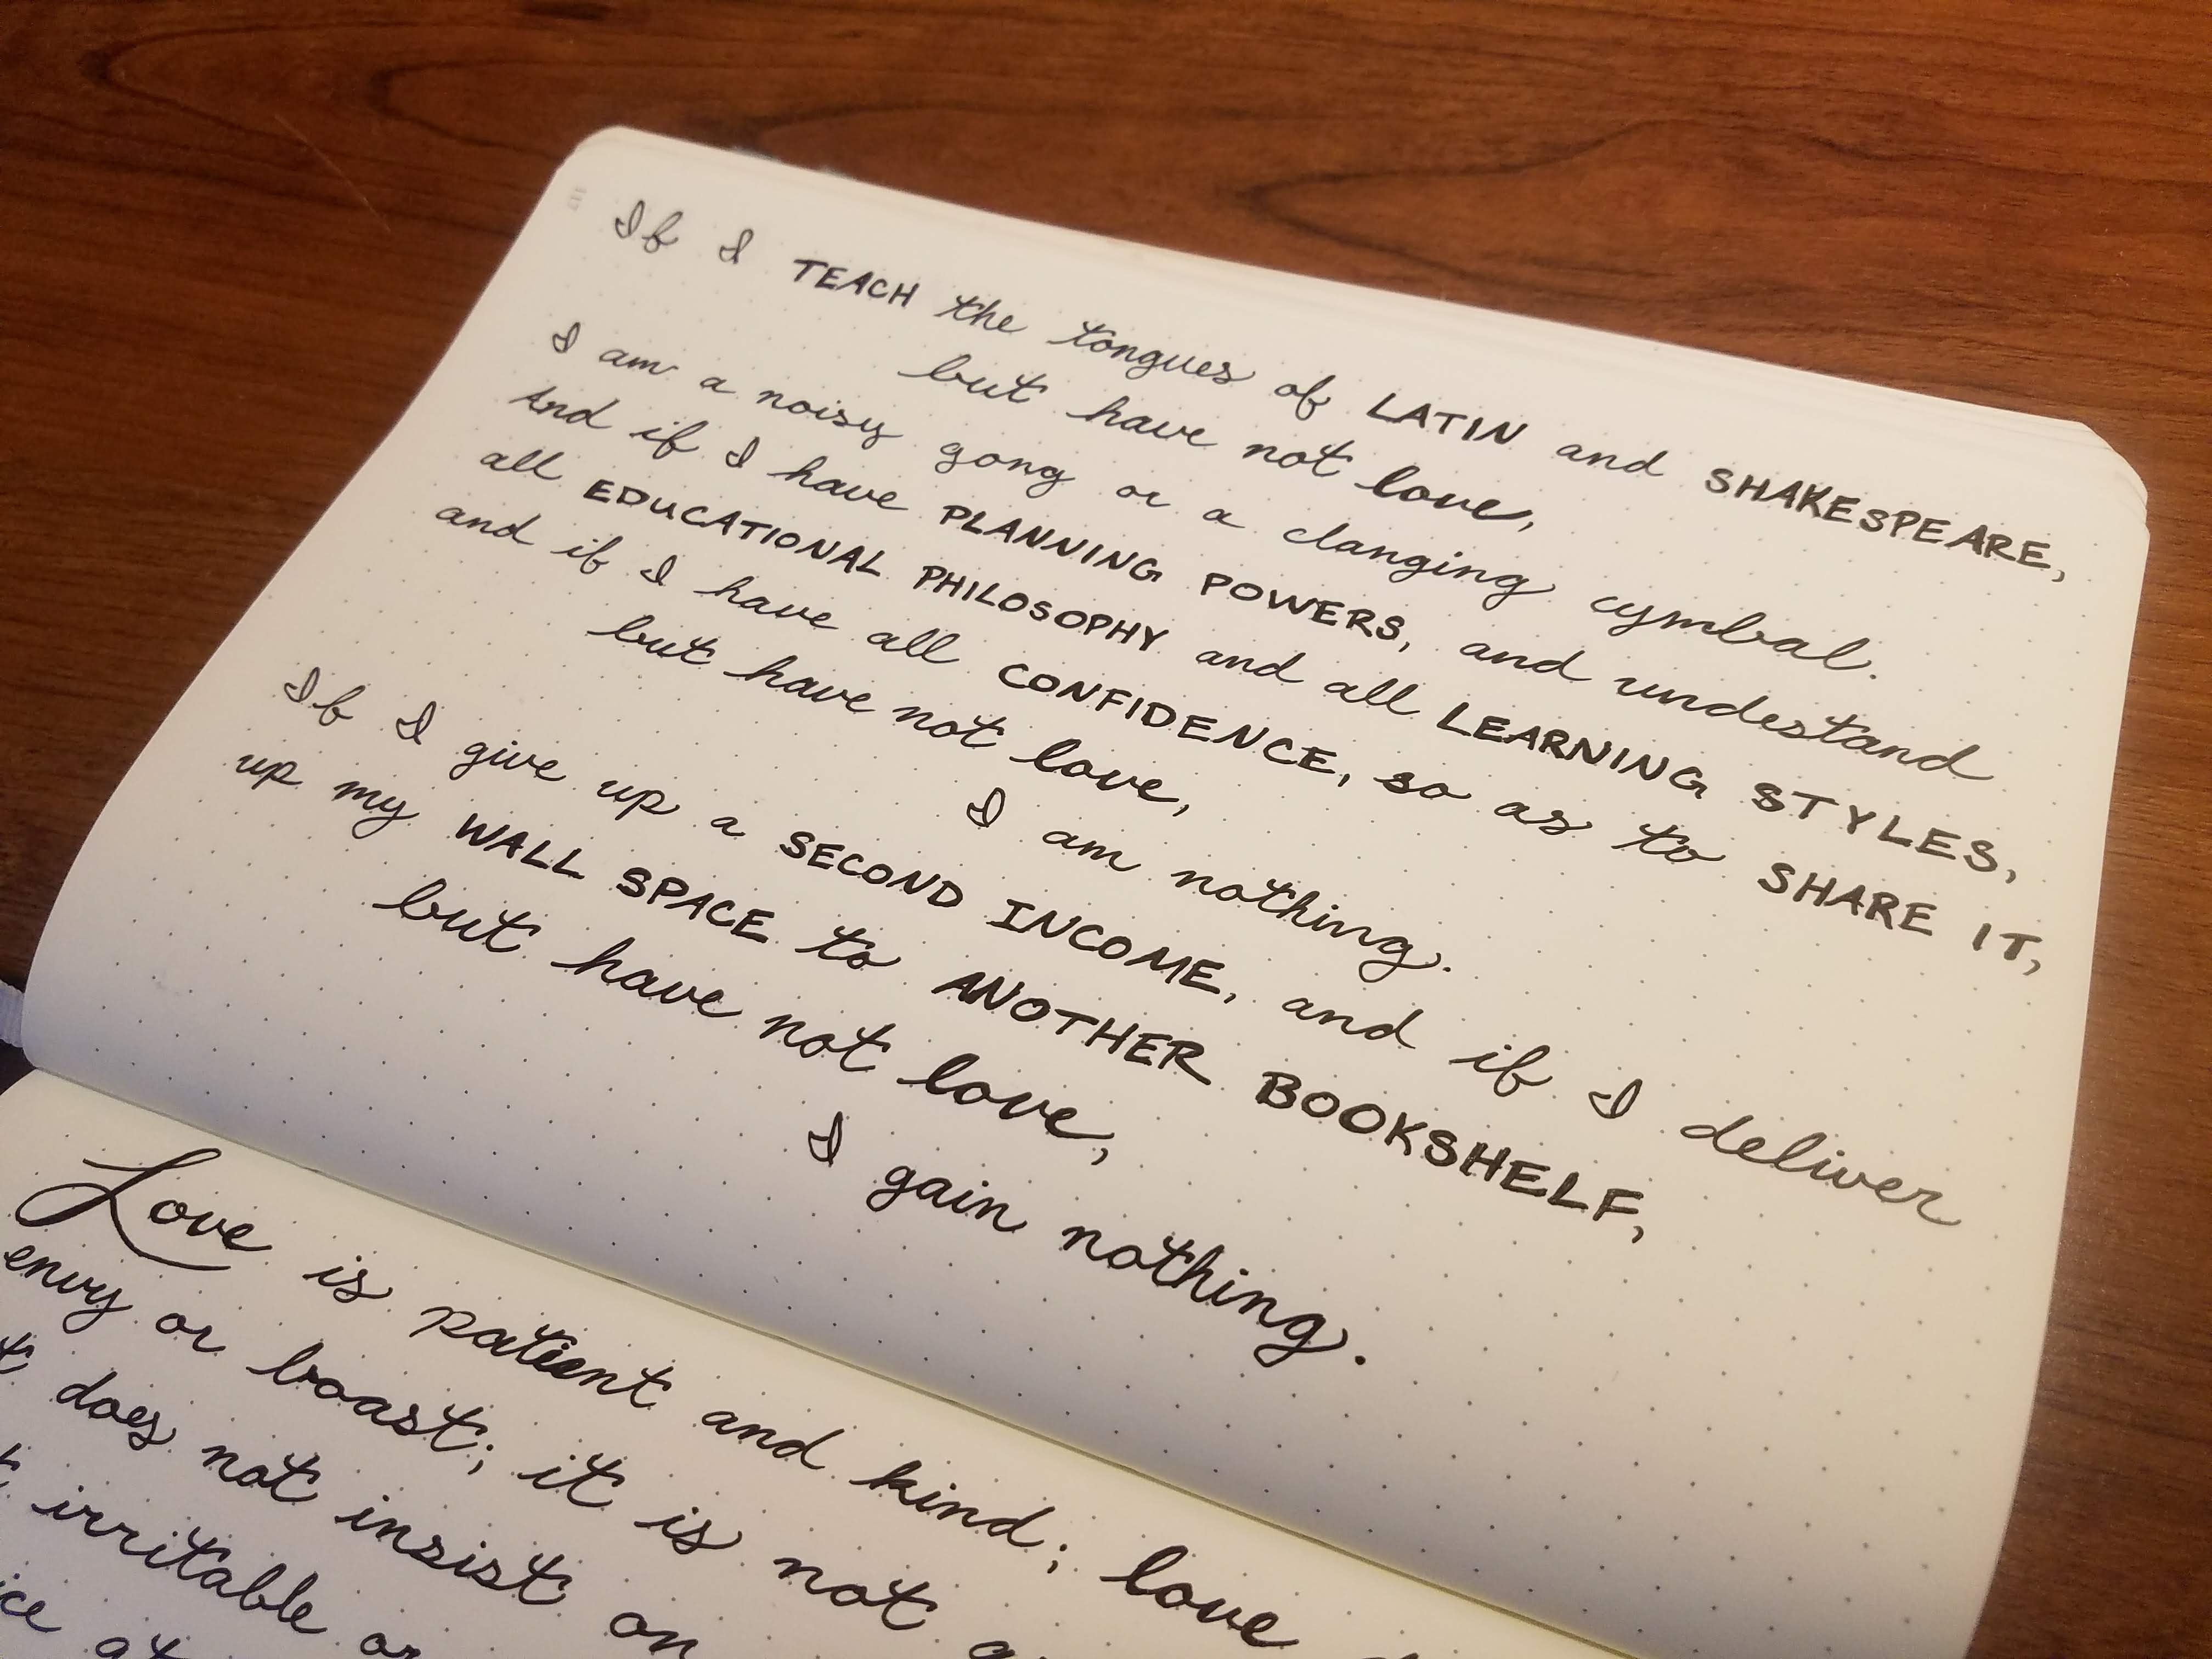 If I TEACH the tongues of LATIN and SHAKESPEARE,
but have not love,
I am a noisy gong or a clanging cymbal.
And if I have PLANNING POWERS, and undestand
all EDUCATIONAL PHILOSOPHY and all LEARNING STYLES,
and if I have all CONFIDENCE, so as to SHARE IT,
but have not love,
I am nothing.
If I give up a SECOND INCOME, and if I deliver
up my WALL SPACE to ANOTHER BOOKSHELF,
but have not love,
I gain nothing.
Love is patient and kind; love
envy or boast; it is not
does not insist on
irritable or